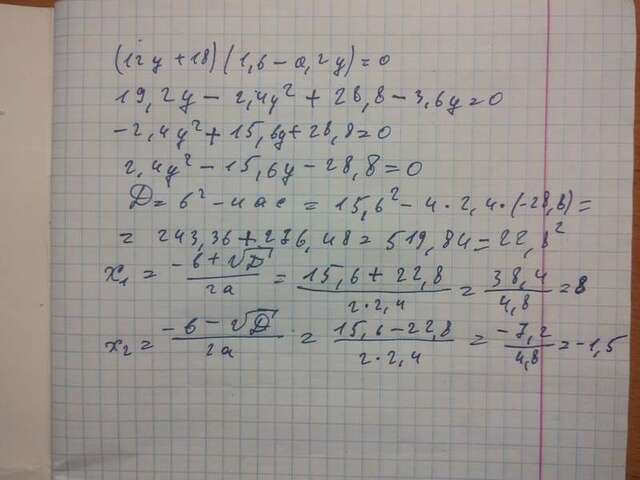 (12y+18)(1,6-0,2y)=0
19,2y-2,4y²+28,8-3,6y=0
-2,4y²+15,6y+28,8=0
2,4y²-15,6y-28,8=0
D=b²-4ac=15,6²-4·2,4·(-28,8)=
=243,36+276,48=519,84=22,8²
x₁=(-b+√D)/2a=(15,6+22,8)/(2·2,4)=38,4/4,8=8
x₂=(-b-√D)/2a=(15,6-22,8)/(2·2,4)=-7,2/4,8=-1,5